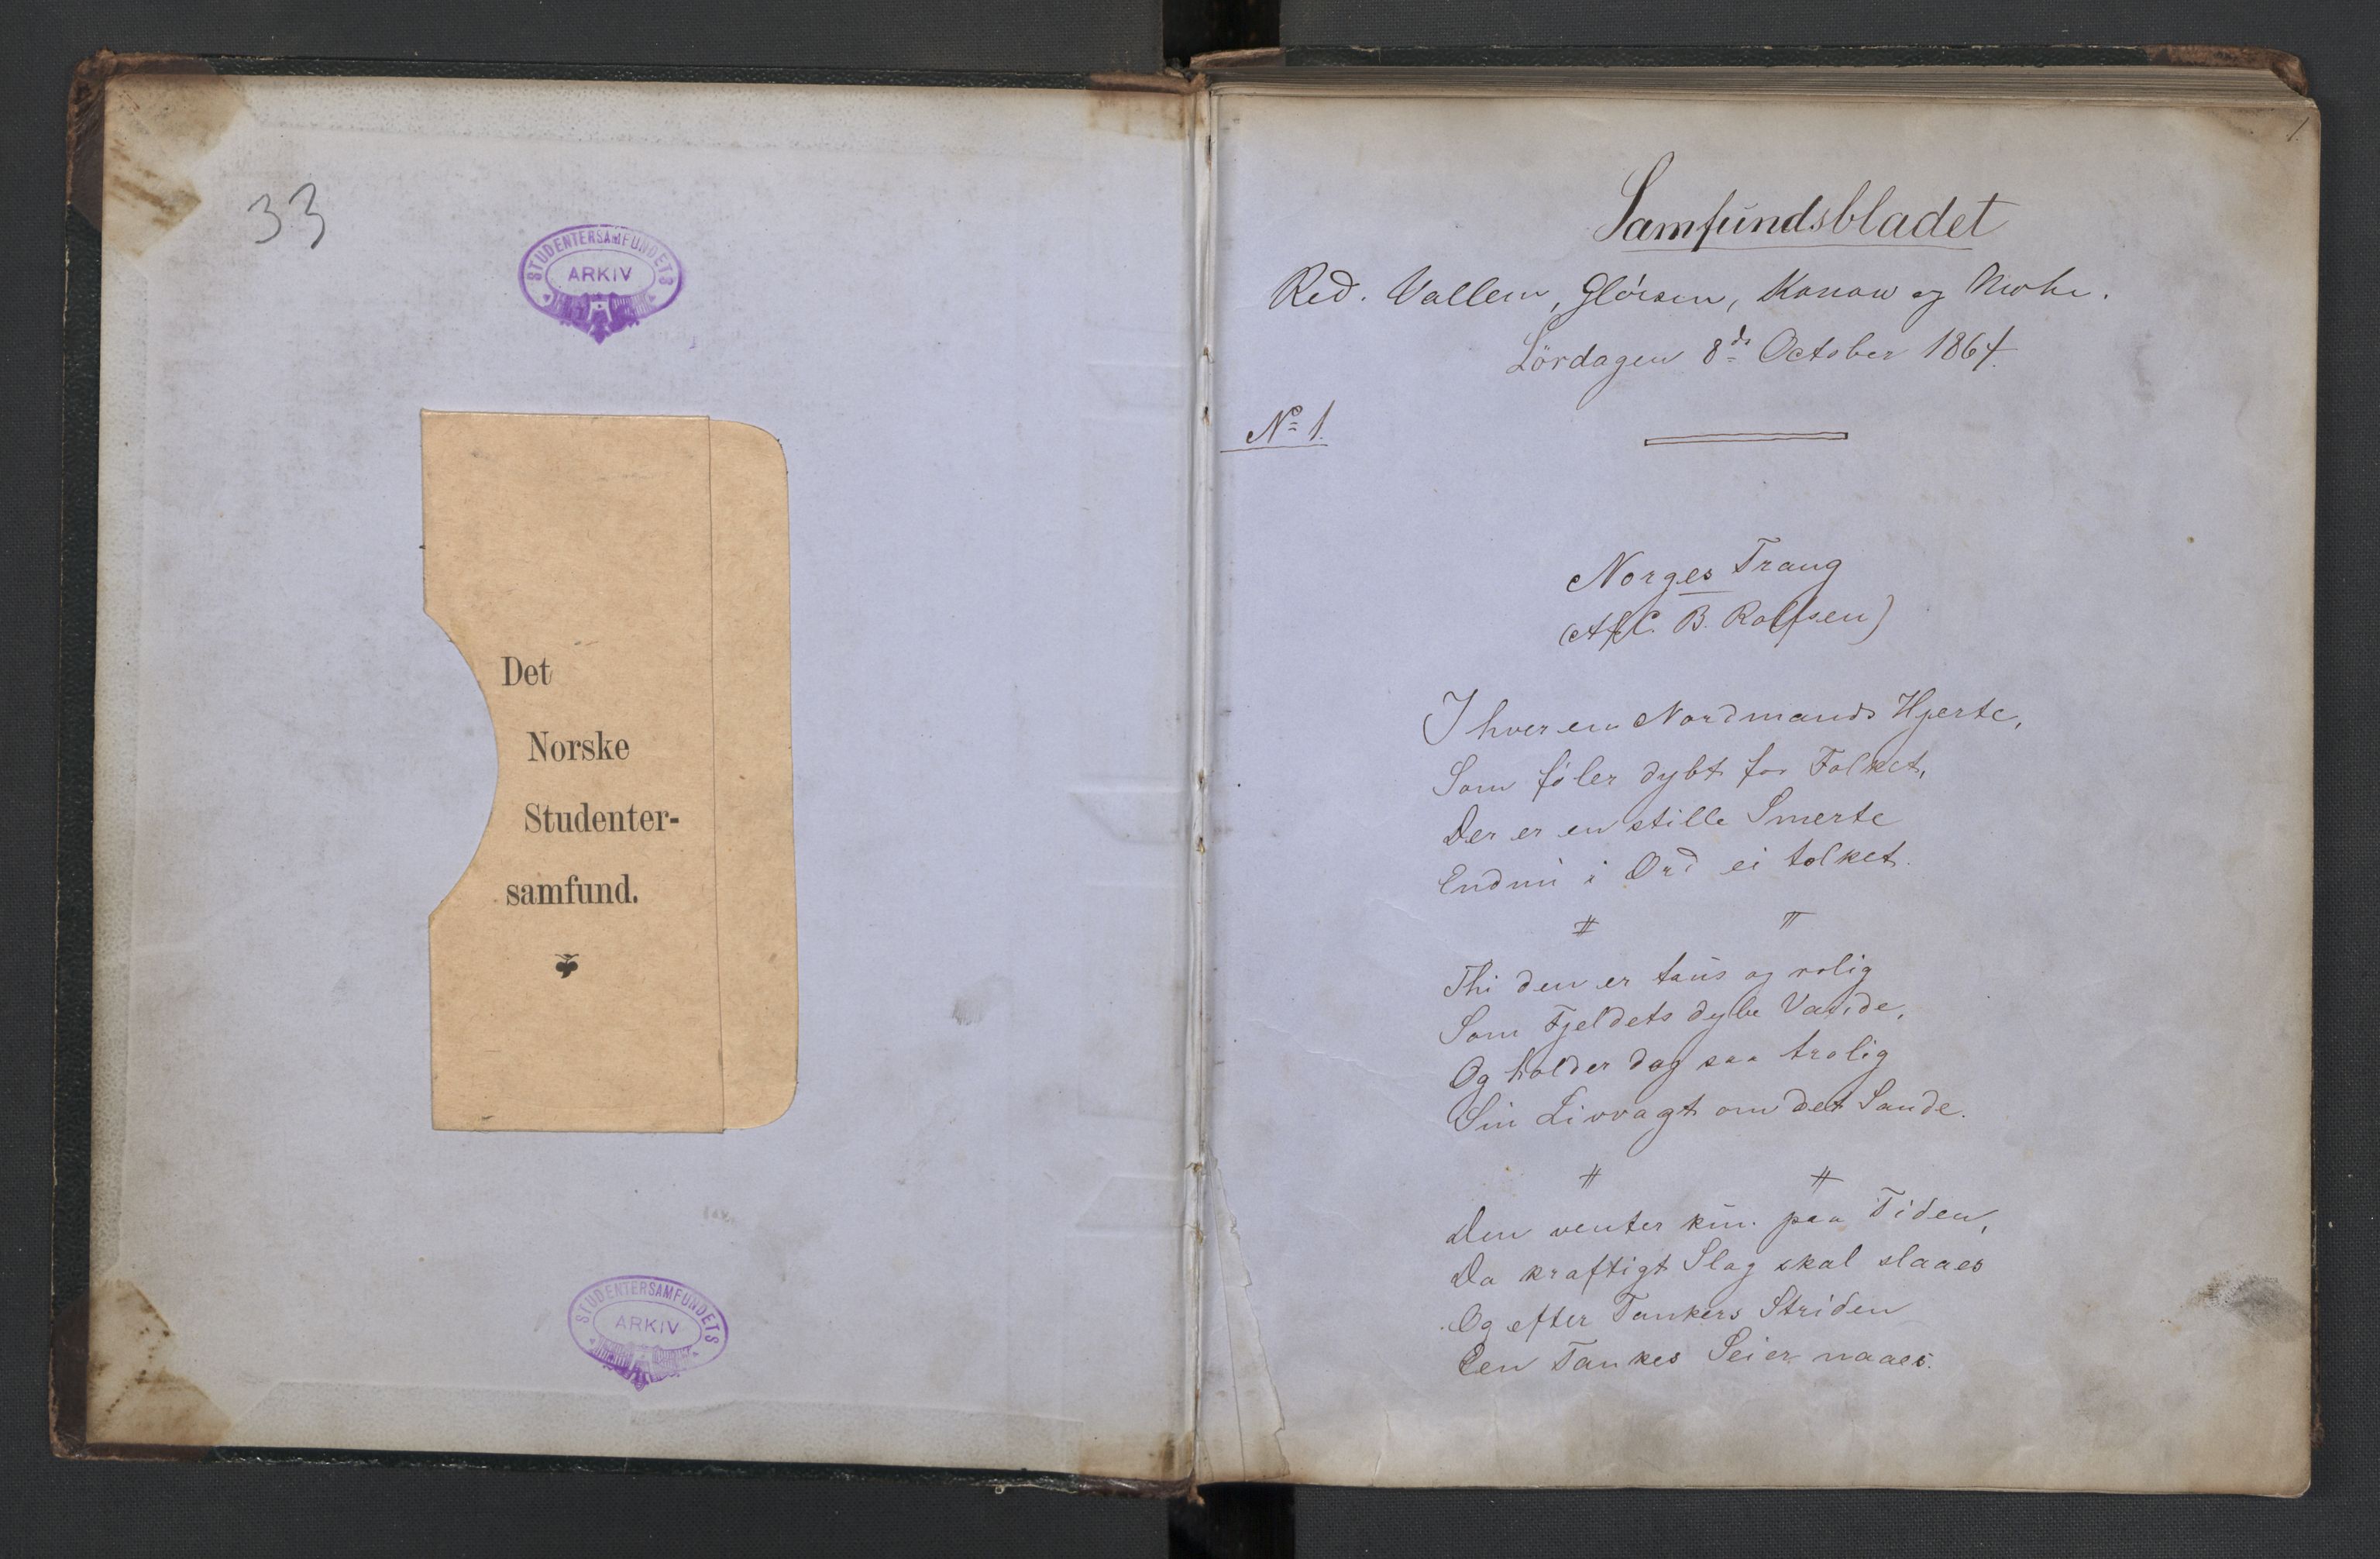 33
STUDENTERSAMFUNDETS
ARKIV
Det
Norske
Studenter-
samfund.
STUDENTERSAMFUNDETS
ARKIV
1.
Samfundsbladet
Red. Vallem, Glørsen, Konow og Mohr.
Lördagen 8de October 1864.
No 1.
Norges Trang
(Af C. B. Rolfsen)
I hver en Nordmands Hjerte,
Som føler dybt for Folket,
Der er en stille Smerte
Endnu i Ord ei tolket.
Thi den er taus og rolig
Som Fjeldets dybe Vande,
Og holder dog saa trolig
Sin Livvagt om det Sande.
Den venter kun paa Tiden,
Da kraftigt Slag skal slaaes
Og efter Tankers Striden
Den Tankes Seier naaes.